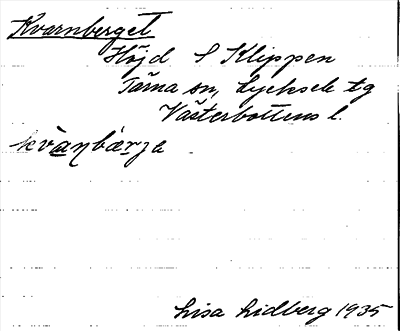 Kvarnberget
Höjd S Klippen
Tärna sn, Lycksele tg
Västerbottens l.
kvànbárja
Lisa Lidberg 1935